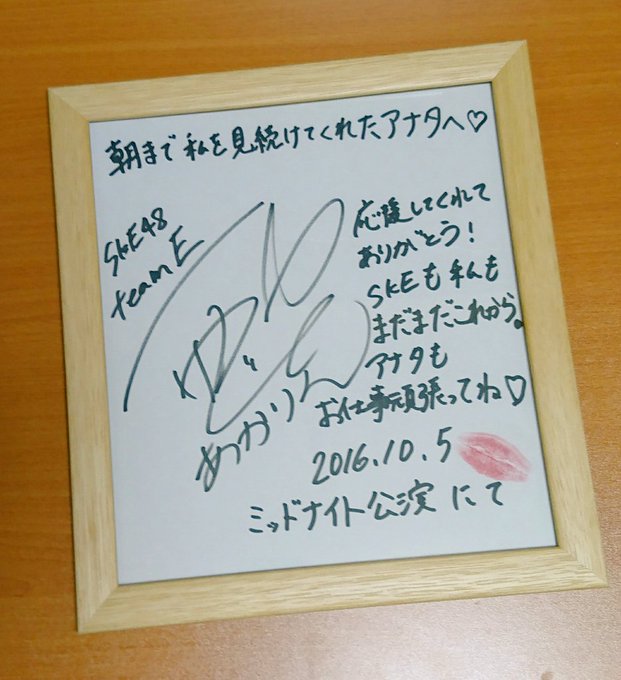 朝まで私を見続けてくれたアナタへ♡
SKE48
teamE
あかりん
応援してくれて
ありがとう!
SKEも私も
まだまだこれから。
アナタも
お仕事頑張ってね♡
2016.10.5
ミッドナイト公演にて